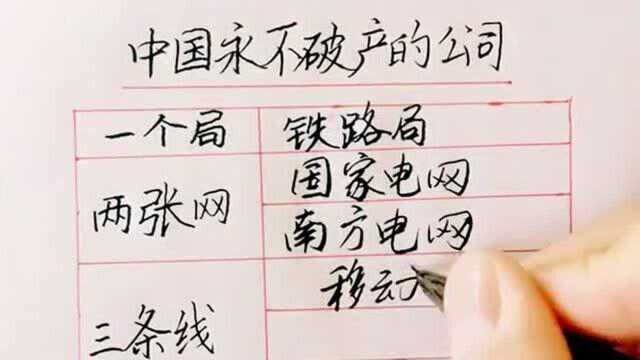 中国永不破产的公司
一个局 铁路局
两张网 国家电网
南方电网
三条线 移动